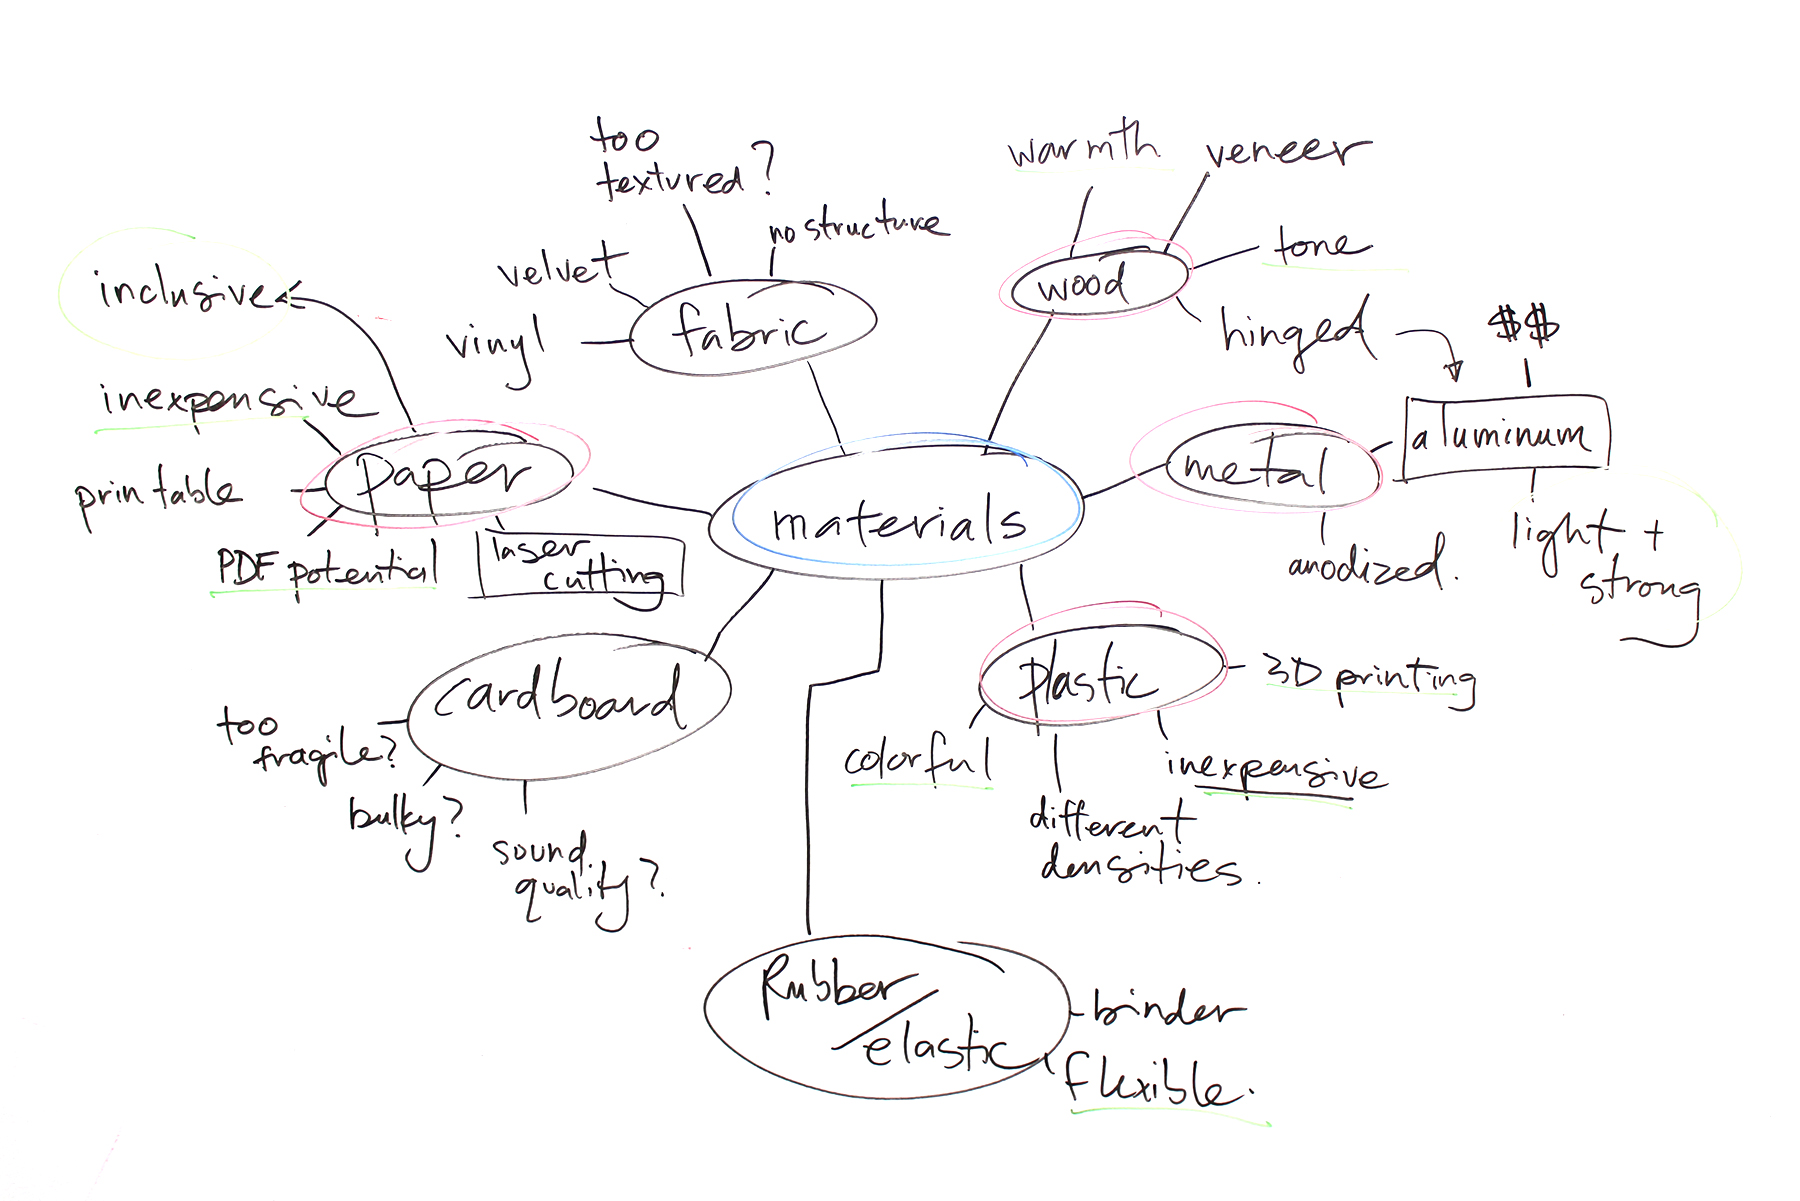 too
textured?
warmth
veneer
no structure
velvet
tone
inclusive
fabric
wood
vinyl
hinged
$$
inexpensive
aluminum
paper
metal
printable
materials
light +
strong
PDF potential
laser
cutting
anodized.
cardboard
plastic
3D printing
too
fragile?
colorful
inexpensive
bulky?
different
densities.
sound
quality?
Rubber/
elastic
binder
flexible.